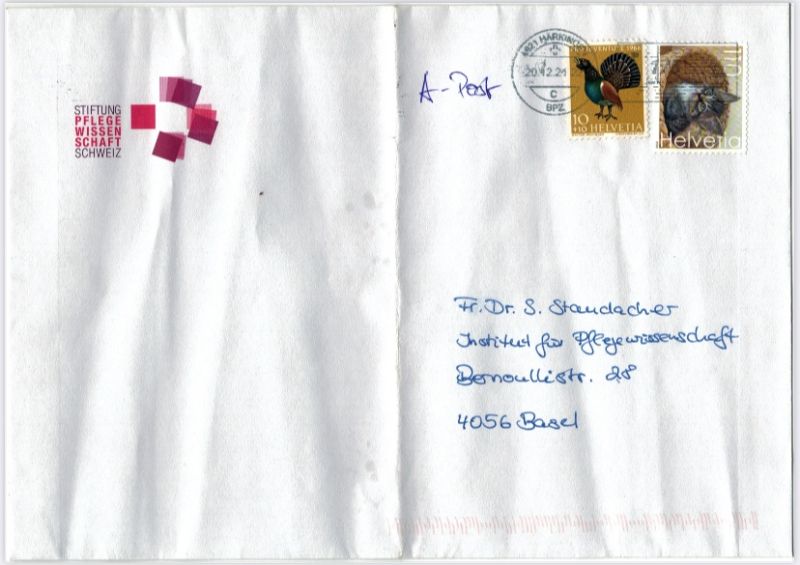 STIFTUNG
PFLEGE
WISSEN
SCHAFT
SCHWEIZ
A-Post
HÄRKINGEN
20.12.21
C
BPZ
PRO JUVENTUTE 1968
10
+10 HELVETIA
110
Helvetia
Fr. Dr. S. Staudacher
Institut für Pflegewissenschaft
Bernoullistr. 28
4056 Basel